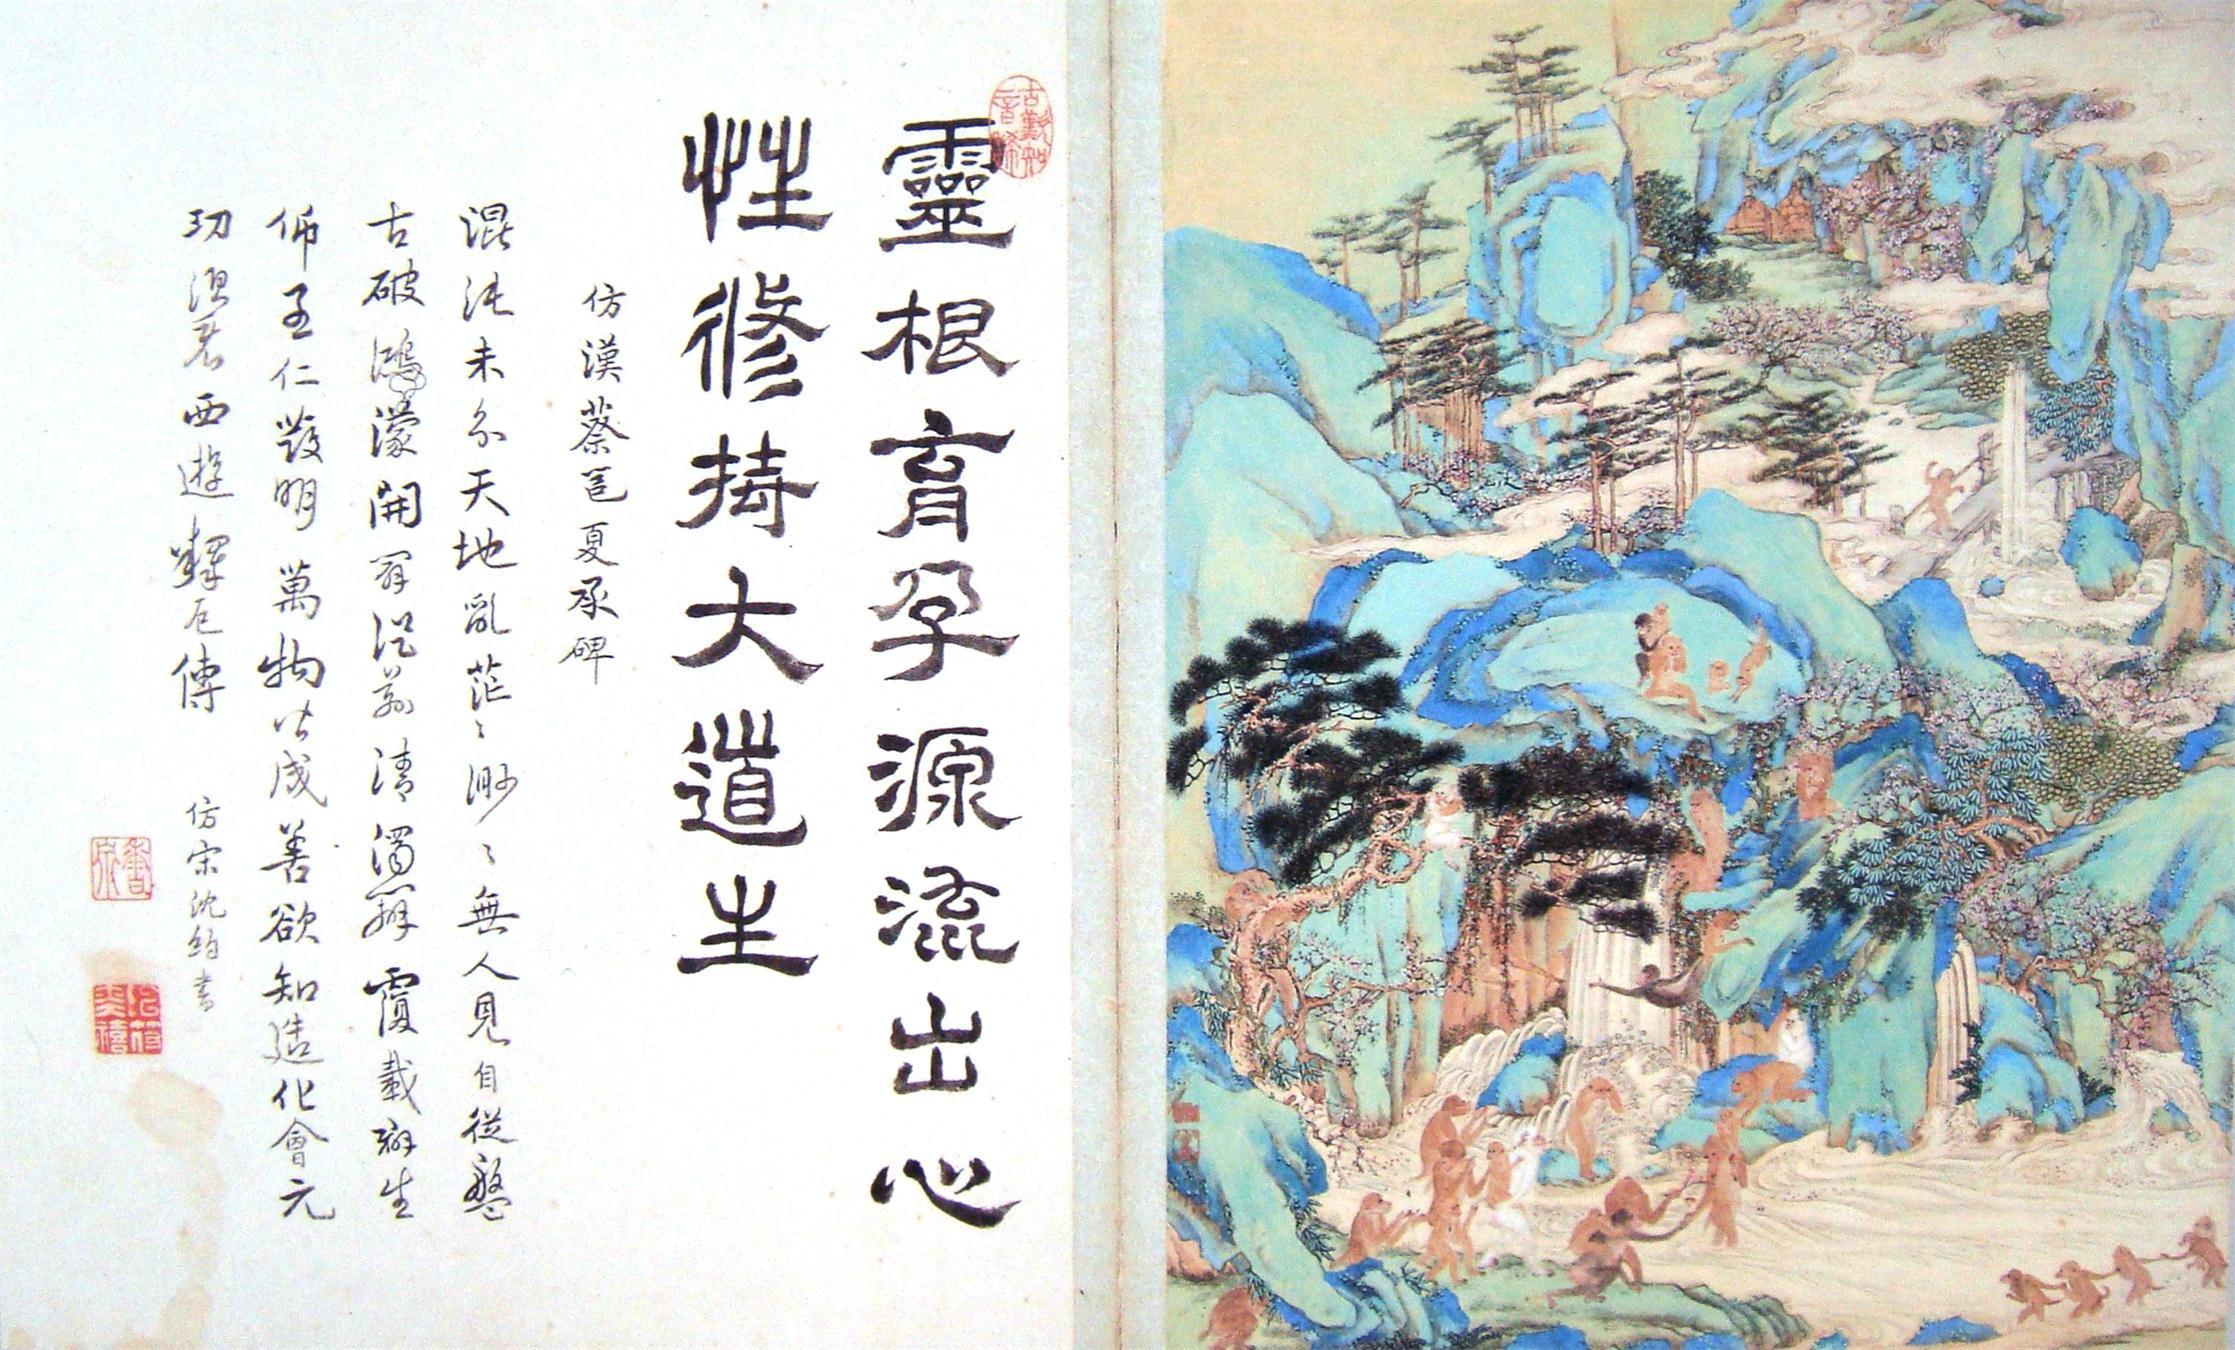 靈根育孕源流出心
性修持大道生
仿漢蔡邕夏承碑
混沌未分天地亂茫〻渺〻無人見自從盤
古破鴻濛開闢從茲清濁辨覆載群生
仰至仁發明萬物皆成善欲知造化會元
功湏看西遊釋厄傳
仿宋沈約書